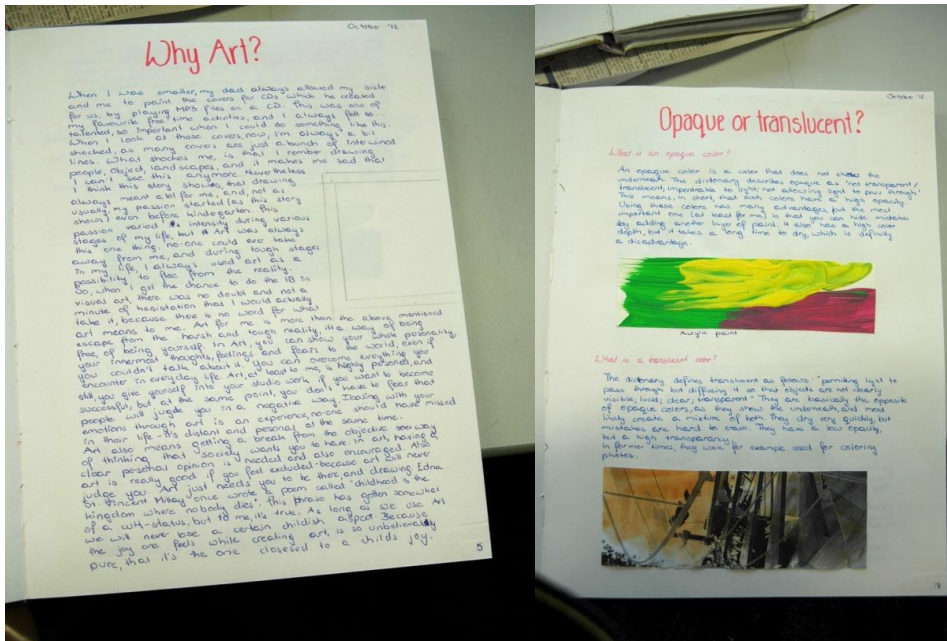 October '12
Why Art?
When I was smaller, my dad always allowed my siste
and me to paint the covers for CDs which he created
for us, by playing MP3 files on a CD. This was one of
my favourite free time activities, and I always felt so...
talented, so important when I could do something like this.
When I look at those covers, now, I'm always a bit
shocked, as many covers are just a bunch of intertwined
lines. What shockes me, is that I rember drawing
people, object, landscapes, and it makes me sad that
I can't see this anymore. Nevertheless
I think this story shows, that drawing
always meant a lot for me, and, not as
usually, my passion started (as this story
shows) even before kindergarten. This
passion varied in intensity during various
stages of my life, but Art was always
this one thing, no-one could ever take
away from me, and during tough stages
in my life, I always used art as a
possibility to flee from the reality.
So, when I got the chance to do the IB in
visual art, there was no doubt and not a
minute of hesistation that I would actually
take it, because there is no word for what
art means to me. Art for me is more than the above mentioned
escape from the harsh and tough reality, it's a way of being
free, of being yourself. In Art, you can show your whole personality,
your innermal thoughts, feelings and fears to the world, even if
you couldn't talk about it. You can overcome everything you
encounter in everyday life. Art, at least to me, is highly personal, and
still, you give yourself into your studio work if you want to become
successful, but at the same point, you don't have to fear that
people will jugde you in a negative way. Dealing with your
emotions through art is an experience, no-one should have missed
in their life - it's distant and personal at the same time.
Art also means getting a break from the objective seeway
of thinking that society wants you to have. In art, having a
clear personal opinion is needed and also encouraged. Also
art is really good if you feel excluded - because art will never
judge you. Art just needs you to be there and drawing. Edna
St. Vincent Millay once wrote a poem called "childhood is the
kingdom where nobody dies". This phrase has gotten somewhat
of a cult-status, but to me, it's true. As long as we use Art
we will never lose a certain childish aspect. Because
the joy one feels while creating art, is so unbelievably
pure, that it's the one closesed to a childs joy.
5
October '12
Opaque or translucent?
What is an opaque color?
An opaque color is a color that does not show the
underneath. The dictionary describes opaque as 'not transparent/
translucent, impenetrable to light; not allowing light to pass through'
This means, in short, that such colors have a high opacity.
Using these colors has many advantages, but the most
important one (at least for me) is that you can hide mistakes
by adding another layer of paint. It also has a high color
depth, but it takes a long time to dry, which is definitly
a disadvantage.
Acrylic paint
What is a translucent color?
The dictionary defines translucent as follows: "permitting light to
pass through but diffusing it so that objects are not clearly
visible; lucid; clear; transparent" They are basically the opposite
of opaque colors, as they show the underneath, and most
likely create a mixture of both. They dry very quickly, but
mistakes are hard to erase. They have a low opacity,
but a high transparency.
In former times, they were for example used for coloring
photos.